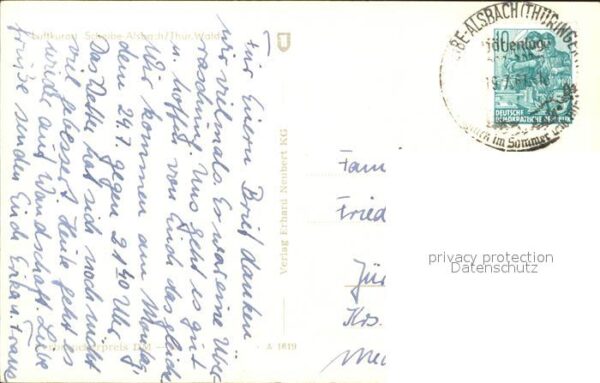 Luftkurort Scheibe-Alsbach/Thür. Wald
Für Euern Brief danken
wir vielmals. Es war eine Über
raschung. Uns geht es gut
u. hoffen von Euch das gleiche
Wir kommen am Montag,
dem 24.7. gegen 21 40 Uhr
Das Wetter hat sich noch nicht
viel gebessert. Heute geht es
wieder auf Wanderschaft. Liebe
Grüße senden Euch Erika u. Franz
Verlag Erhard Neubert KG
A 1619
BE-ALSBACH (THÜRINGER
19.7.61
im Sommer
10
DEUTSCHE
DEMOKRATISCHE REPUBLIK
Fam
Fried
Jür
Krs.
Mec
privacy protection
Datenschutz